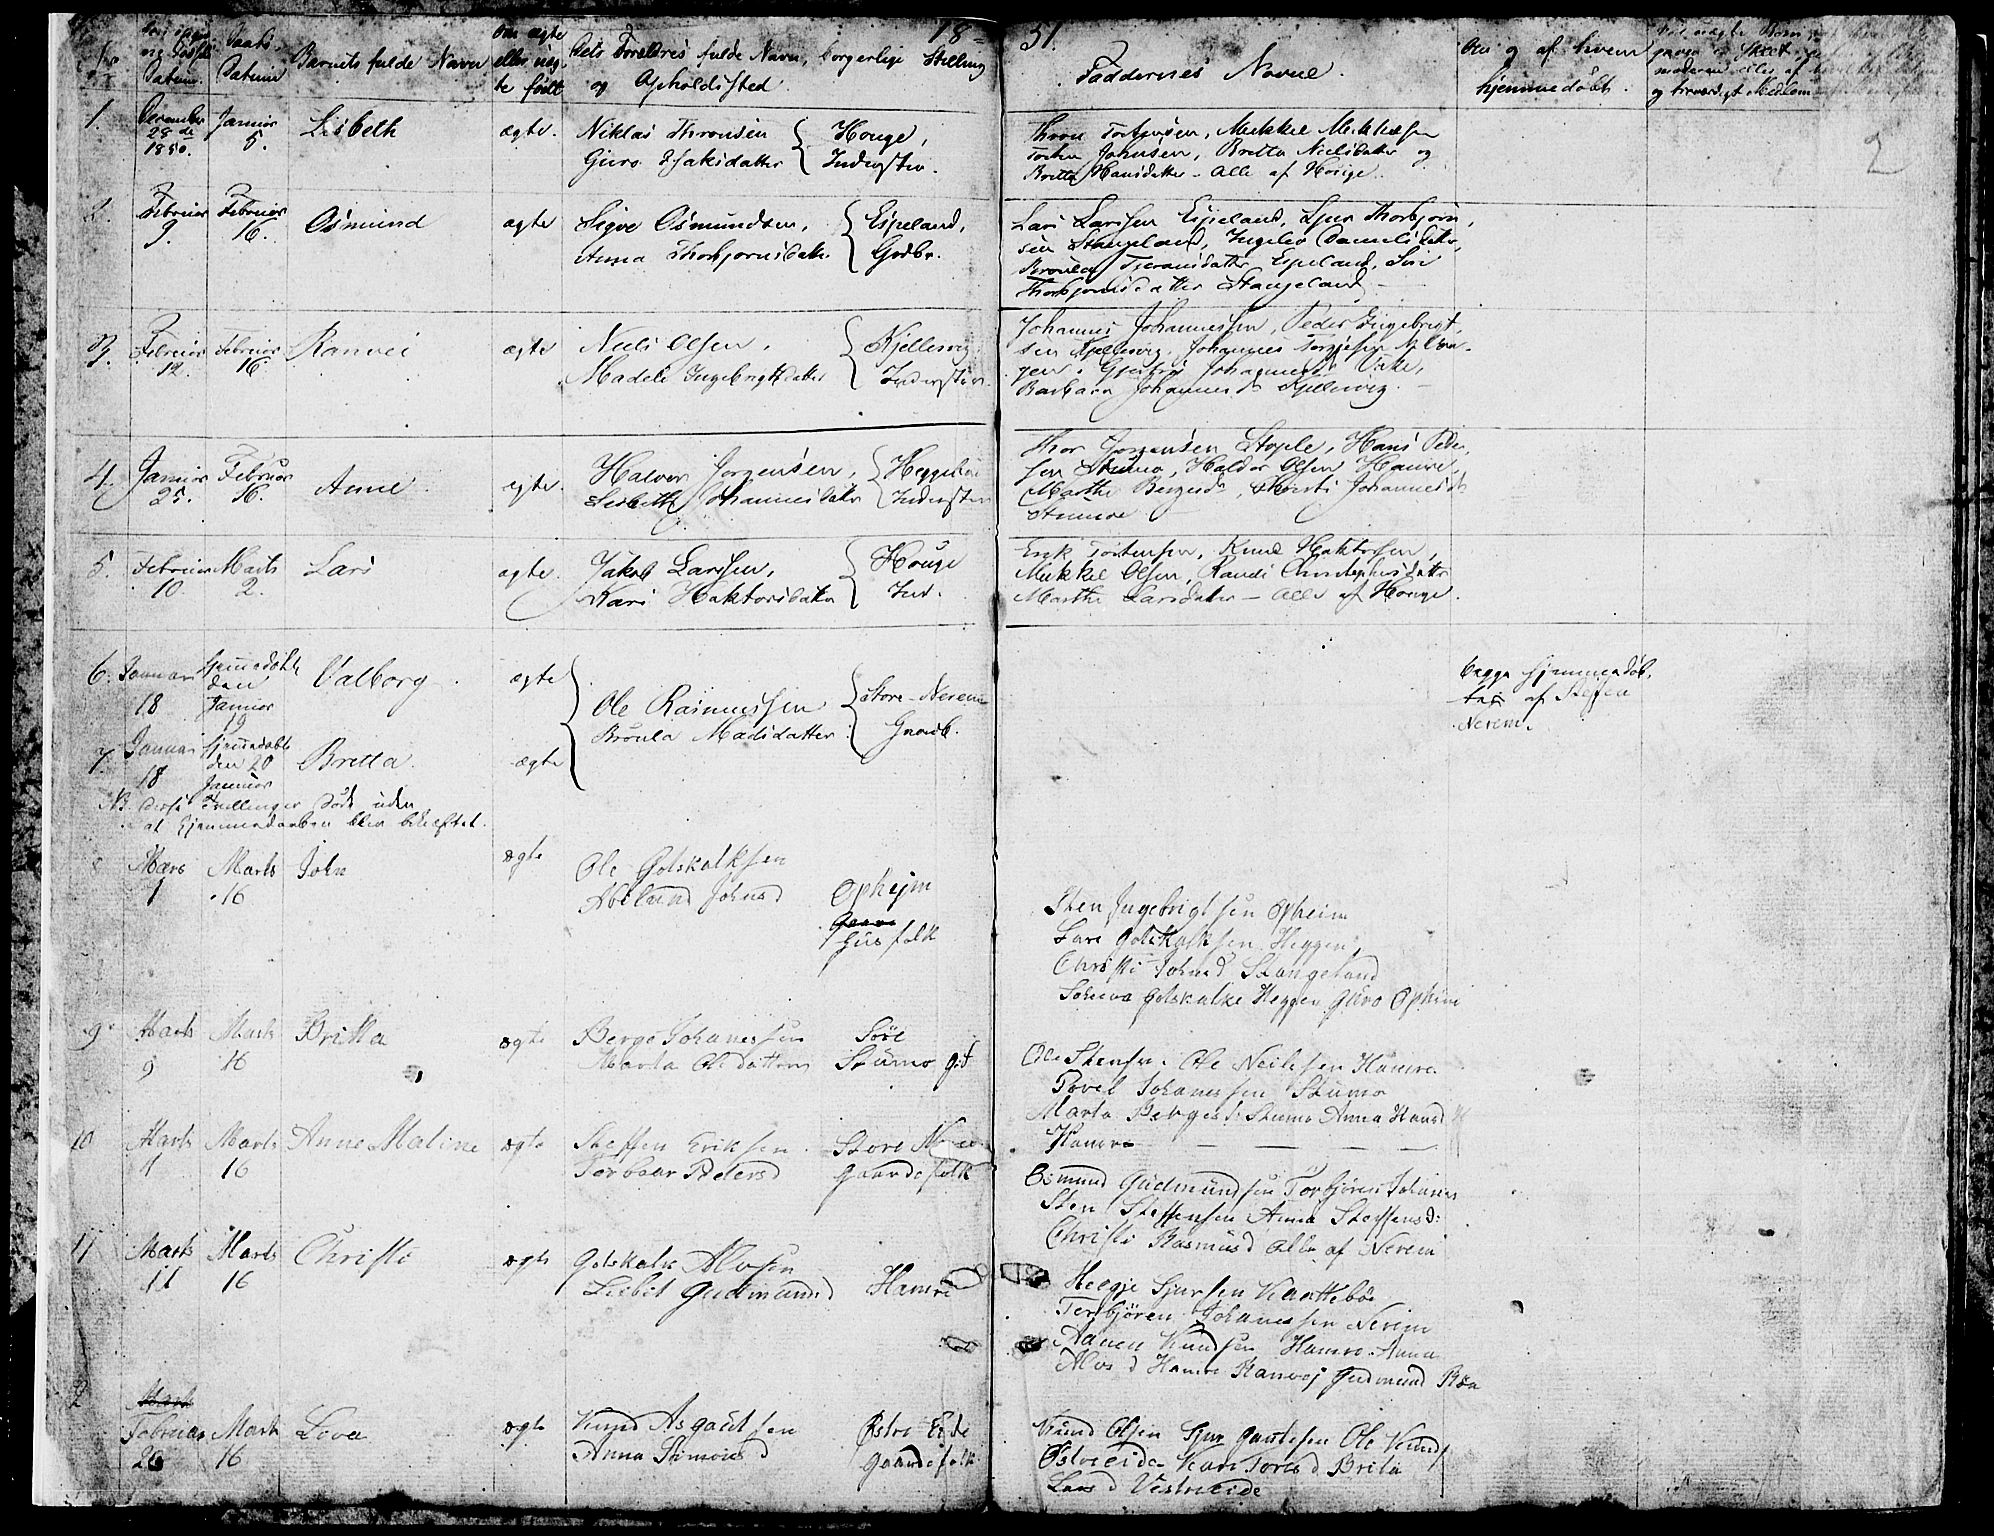 18 51.
Datum.
Daabs
Datum
Barnets fulde Navn
om ægte
eller uæg
te født
Forældres fulde Navn, borgerlige Stilling
og Opholdssted.
Faddernes Navne.
og af hvem
hjemmedøbt.
2
1.
December
28de
1850.
Januar
5.
Lisbeth
ægte.
Niklas Thronsen
Guro Isaksdatter
Houge,
Inderster.
Thron Torstensen, Mikkel Mikkelsen
Torsten Johnsen, Britta Nielsdatter og
Britta Hansdatter - Alle af Houge.
2.
Februar
9.
Februar
16.
Osmund
ægte
Sigve Osmundsen,
Anna Thorbjornsdatter
Espeland,
Grdbr.
Lars Larssen Espeland, Sjur Thorbjorn
sen Stangeland, Ingelev Danielsdatter,
Brønla Espeland, Siri
Thorbjornsdatter Stangeland
3.
Februar
12.
Februar
16.
Ranvei
ægte
Niels Olsen,
Madele Ingebrigtsdatter
Kjellesvig
Inderster.
Johannes Johannessen, Peder Ingebrigt-
sen Kjellesvig, Johannes
Barbara Johannesd. Kjellesvig.
4.
Januar
25.
Februar
16.
Anne
ægte.
Halvor Jorgensen,
Lisbeth Johannesdatter
Inderster
Thor Jorgensen Stople, Hans Peder
sen Stumo, Haldor Olsen Hamre,
Marthe Johannesd.
Stumoe
5.
Februar
10.
Marts
2.
Lars
ægte.
Jakob Larssen,
Kari Haktorsdatter
Houge
Ind.
Erik Torstensen, Knud Haktorsen,
Mikkel Olsen, Randi Christophersdatter
Marthe Larsdatter - Alle af Houge.
6.
Januari
18
hjemmedøbt
den
Januar
19
Valborg
ægte
Ole Rasmussen
Brønla Madsdatter.
Store-Nereim
Gaardb.
begge hjemmedøb.
te af Steffen
Nereim.
7.
Januari
18
hjemmedøbt
den 20
Januar
Britta.
ægte
NB. Disse Tvillinger døde uden
at hjemmedaaben blev bekræftet.
8
Mars
1
Marts
16
John
ægte
Ole Gotskalksen
Abelund Johnsd
Opheim
Gaard
Husfolk
Sten Ingebrigtsen Opheim
Lars Gotskalksen Heggen,
Christi Johnsd Stangeland
Gotskalks Heggen Guro Opheim
9
Marts
9
Marts
16
Britta
ægte
Berge Johanessen
Marta Olsdatter
Søre
Stumo
Ole Stensen. Ole Neilsen Hamre
Povel Johanessen Stumo
Marta Bergesd: Stumo Anna Hansd
Hamre
10
Marts
1
Marts
16
Anne Maline
ægte
Steffen Eriksen.
Torboar Pedersd
Store
Gaardsfolk
Osmund Gudmundsen Torbjøren Johanes
Sten Steffensen Anna Steffensd:
Christi Rasmusd alle af Nereim
11
Marts
11
Marts
16
Christi
ægte
Gotskalk Alvsen
Lisbet Gudmundsd
Hamre
Helgje Sjursen
Torbjøren Johanessen Nereim
Aanen Knudsen Hamre Anna
Alvsd Hamre Ranvej Gudmund
2
Marts
Februar
26
Marts
16
Lova
ægte
Knud Asgautsen
Anna Simonsd
Østre Eide
Gaardsfolk
Knud Olsen Sjur Gautesen Ole Knuds
Østreeide Kari Toresd Brita
Larsd Vestreeide